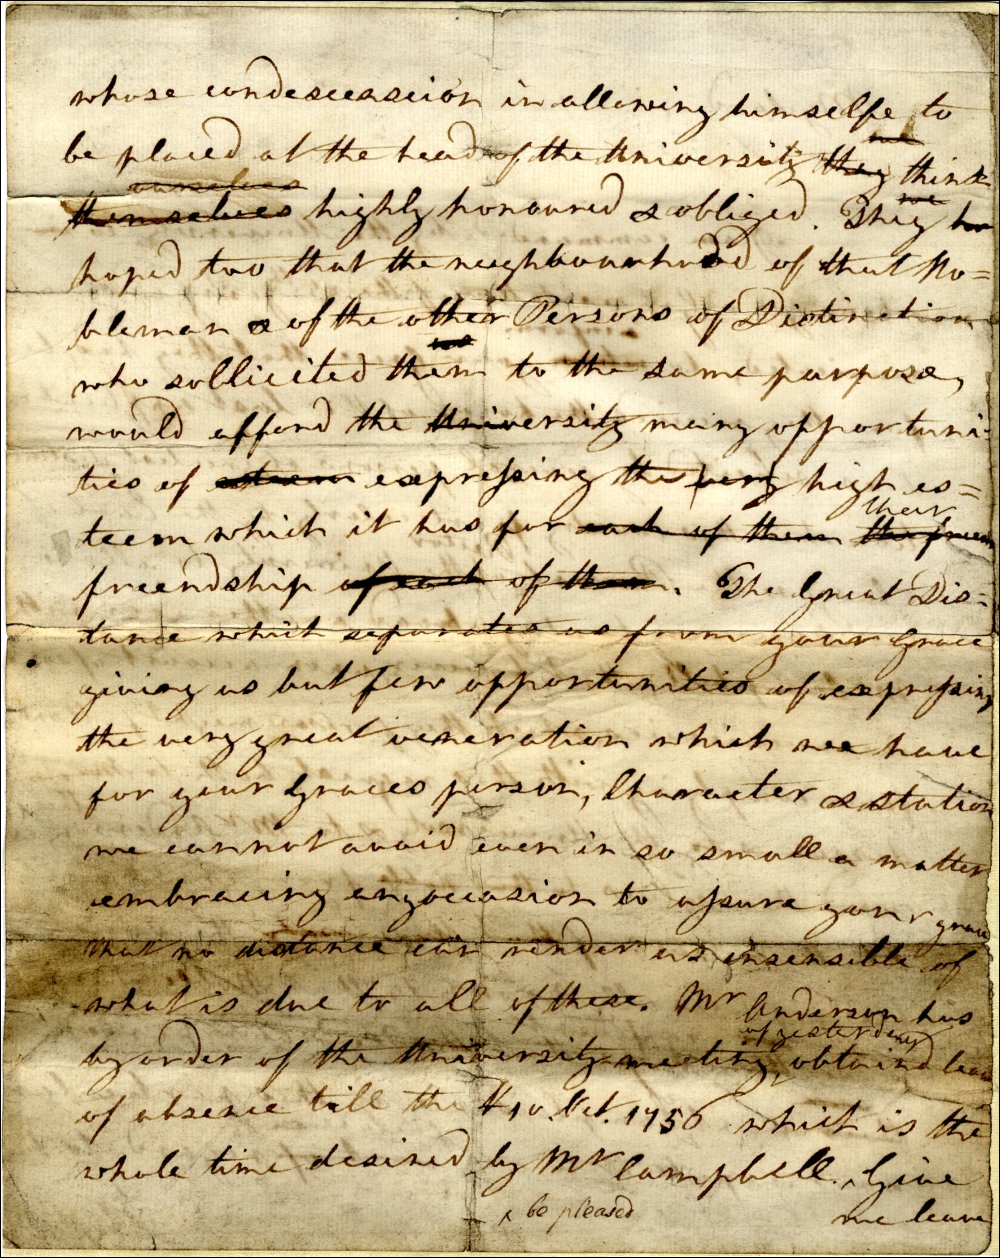 whose condescension in allowing himselfe to
be placed at the head of the University they think
we
ourselves
themselves highly honoured & obliged. They
we
hoped too that the neighbourhood of that No=
bleman & of the other Persons of Distinction
who sollicited them to the same purpose,
would afford the University many opportuni-
ties of esteem expressing the very high es=
teem which it has for each of them their the freen
freendship of each of them. The Great Dis=
tance which separates us from your Grace
giving us but few opportunities of expressing
the very great veneration which we have
for your Graces person, Character & station
we cannot avoid even in so small a matter
embracing any occasion to assure your grace
that no distance can render us insensible of
what is due to all of these. Mr Anderson has
of yesterday
by order of the University meeting, obtained leave
of absence till the 10. Oct. 1756 which is the
whole time desired by Mr Campbell. ^ Give
^ be pleased
me leave